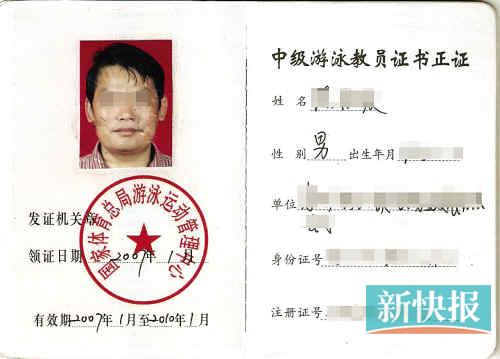 国家体育总局游泳运动管理中心
发证机关章
领证日期 2007年1月
有效期2007年1月至2010年1月
中级游泳教员证书正证
姓名
性别 男 出生年月
单位
身份证号
注册证号
新快报